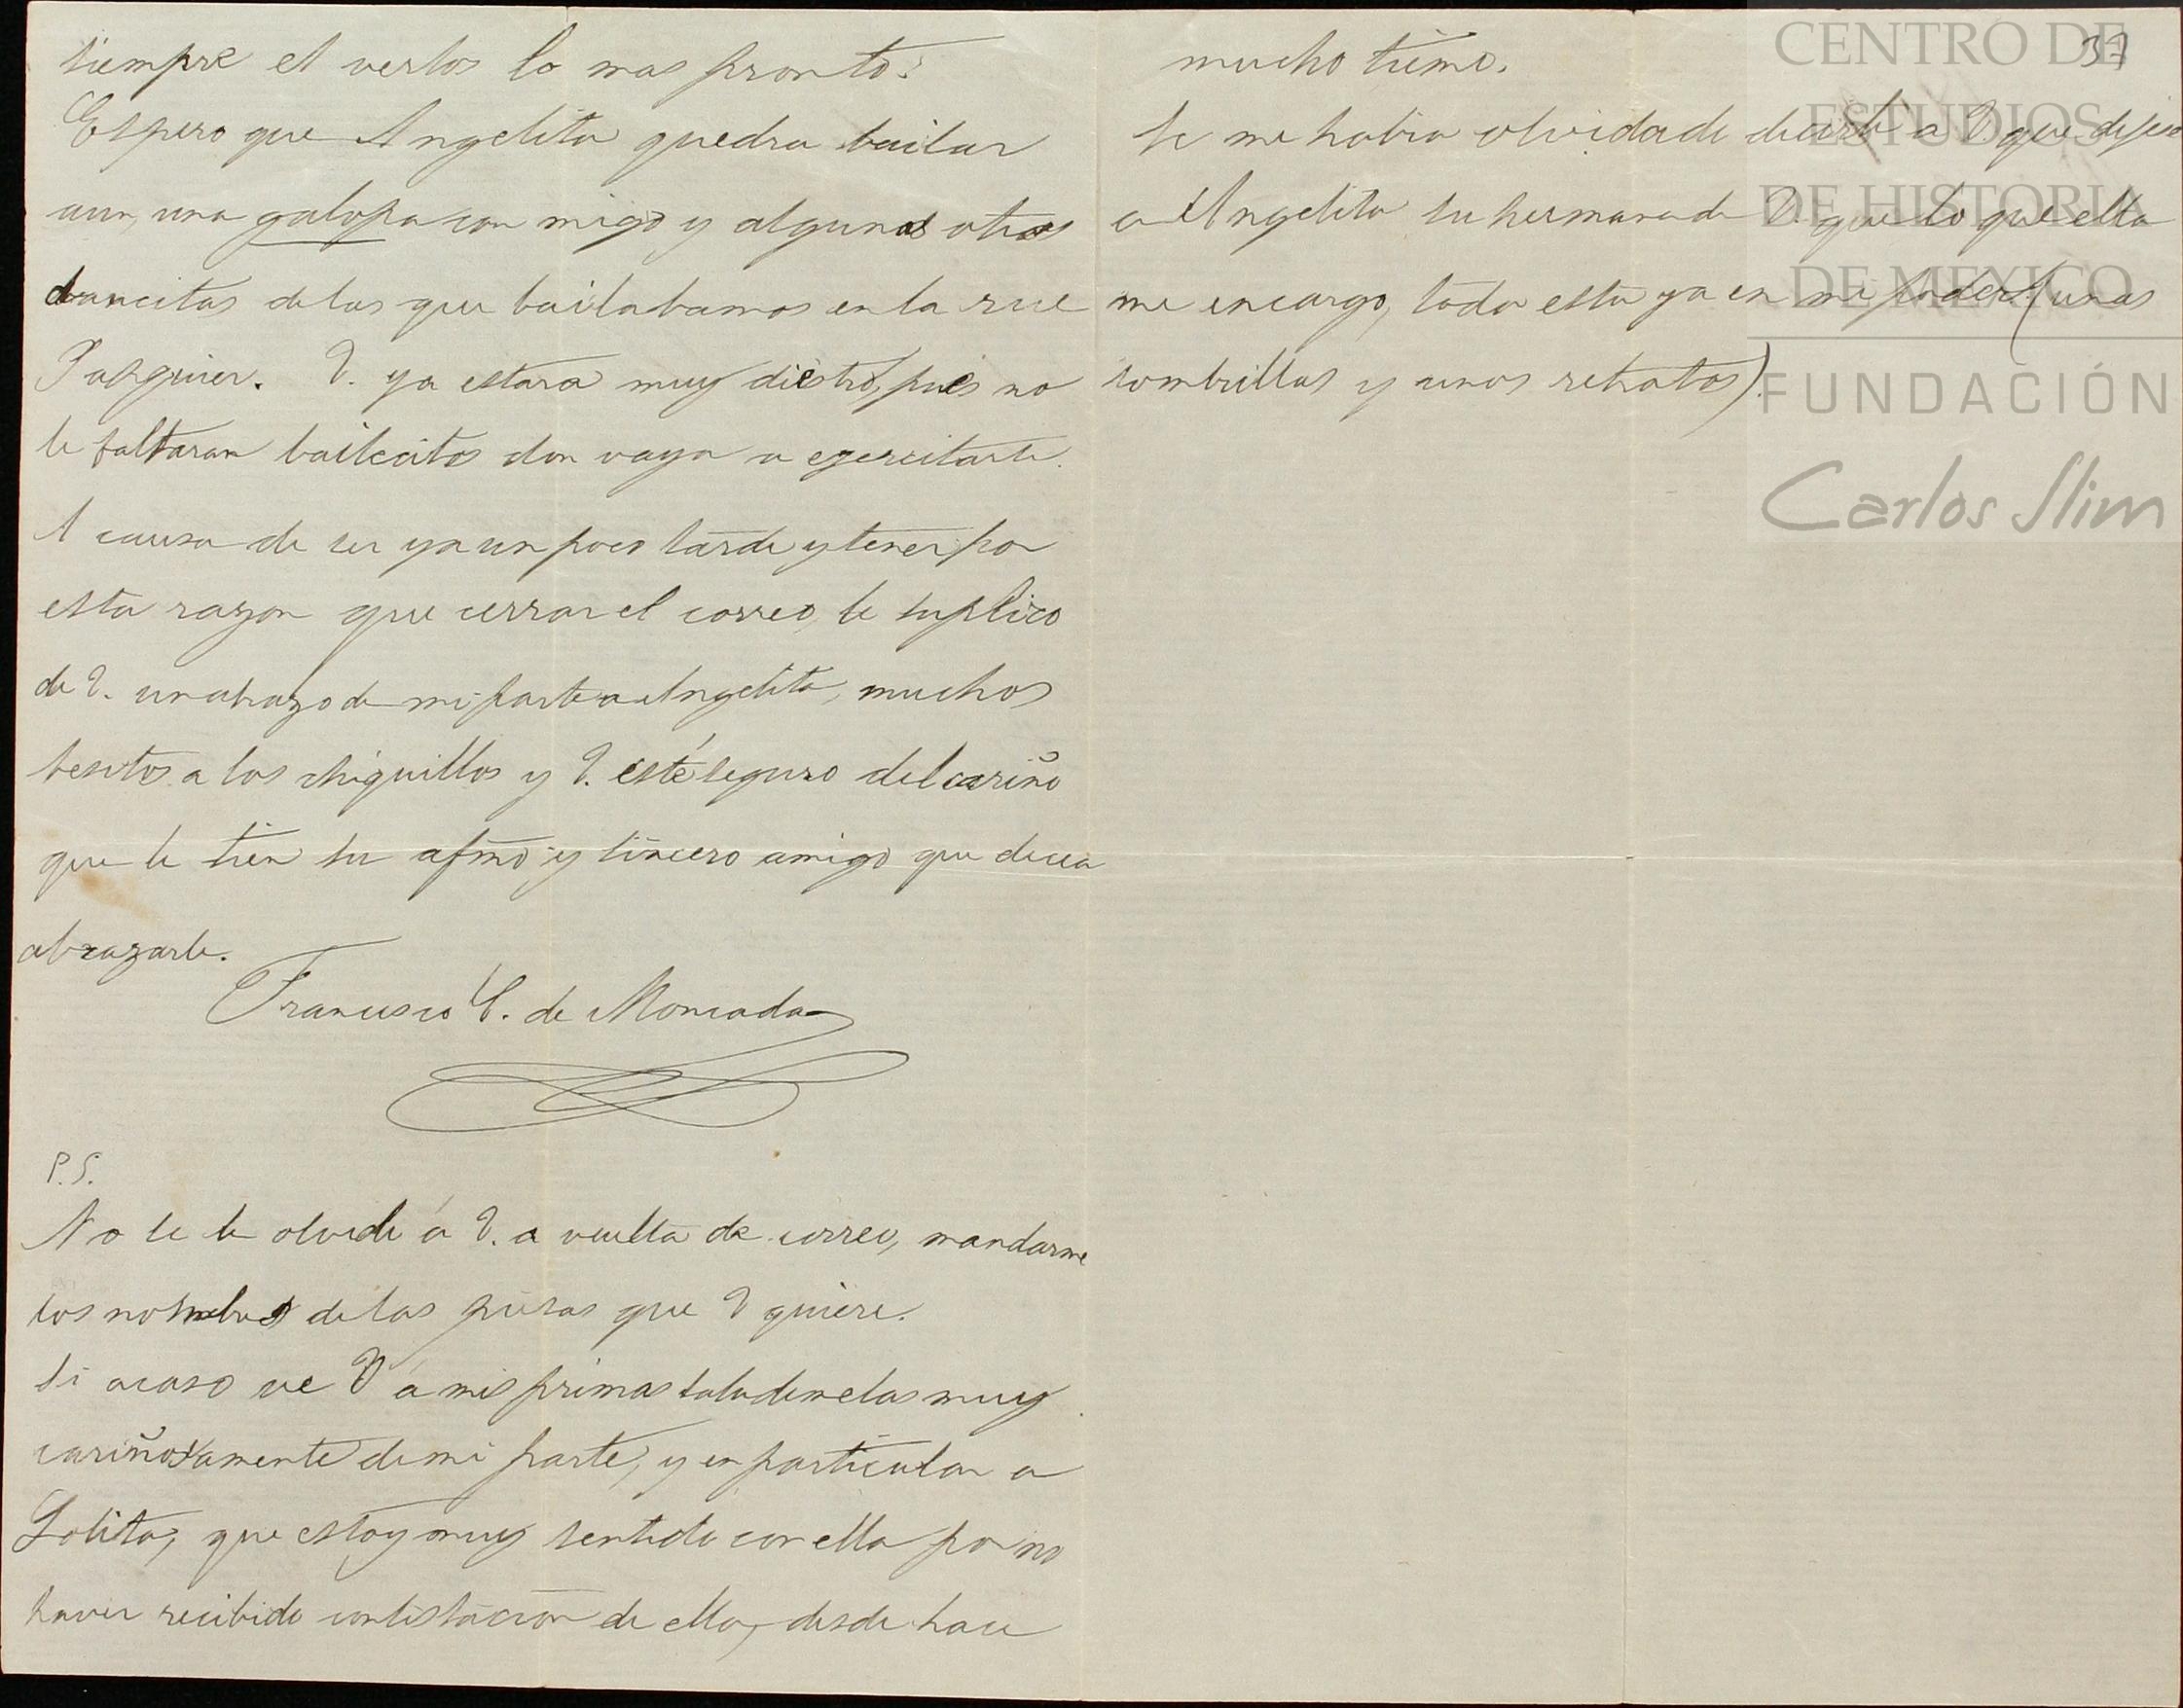 siempre el verlos lo mas pronto.
Espero que Angelita quedra bailar
aun, una galopa con migo y algunas otras
dancitas de las que bailabamos en la rue
Pasquier. V. ya estara muy diestro, pues no
le faltaran bailecitos don vaya a egercitarse.
A causa de ser ya un poco tarde y tener por
esta razon que cerrar el correo, le suplico
de V. un abrazo de mi parte a Angelita, muchos
besitos a los chiquillos y V. esté seguro del cariño
que le tien su afmo y sincero amigo que desea
abrazarle.
Francisco C. de Moncada
P.S.
No se le olvide á V. a vuelta de correo, mandarme
los nombres de las piesas que V quiere.
Si acaso ve V á mis primas saludemelas muy
cariñosamente de mi parte, y en particular a
Lolita, que estoy muy sentido con ella por no
haver recibido contestacion de ella, desde hace
mucho tiemo.
Se me habia olvidade decirle a V. que dijese
a Angelita su hermana de V. que lo que ella
me encargo, todo esta ya en mi poder (unas
sombrillas y unos retratos).
37
CENTRO DE
ESTUDIOS
DE HISTORIA
DE MEXICO
FUNDACIÓN
Carlos Slim